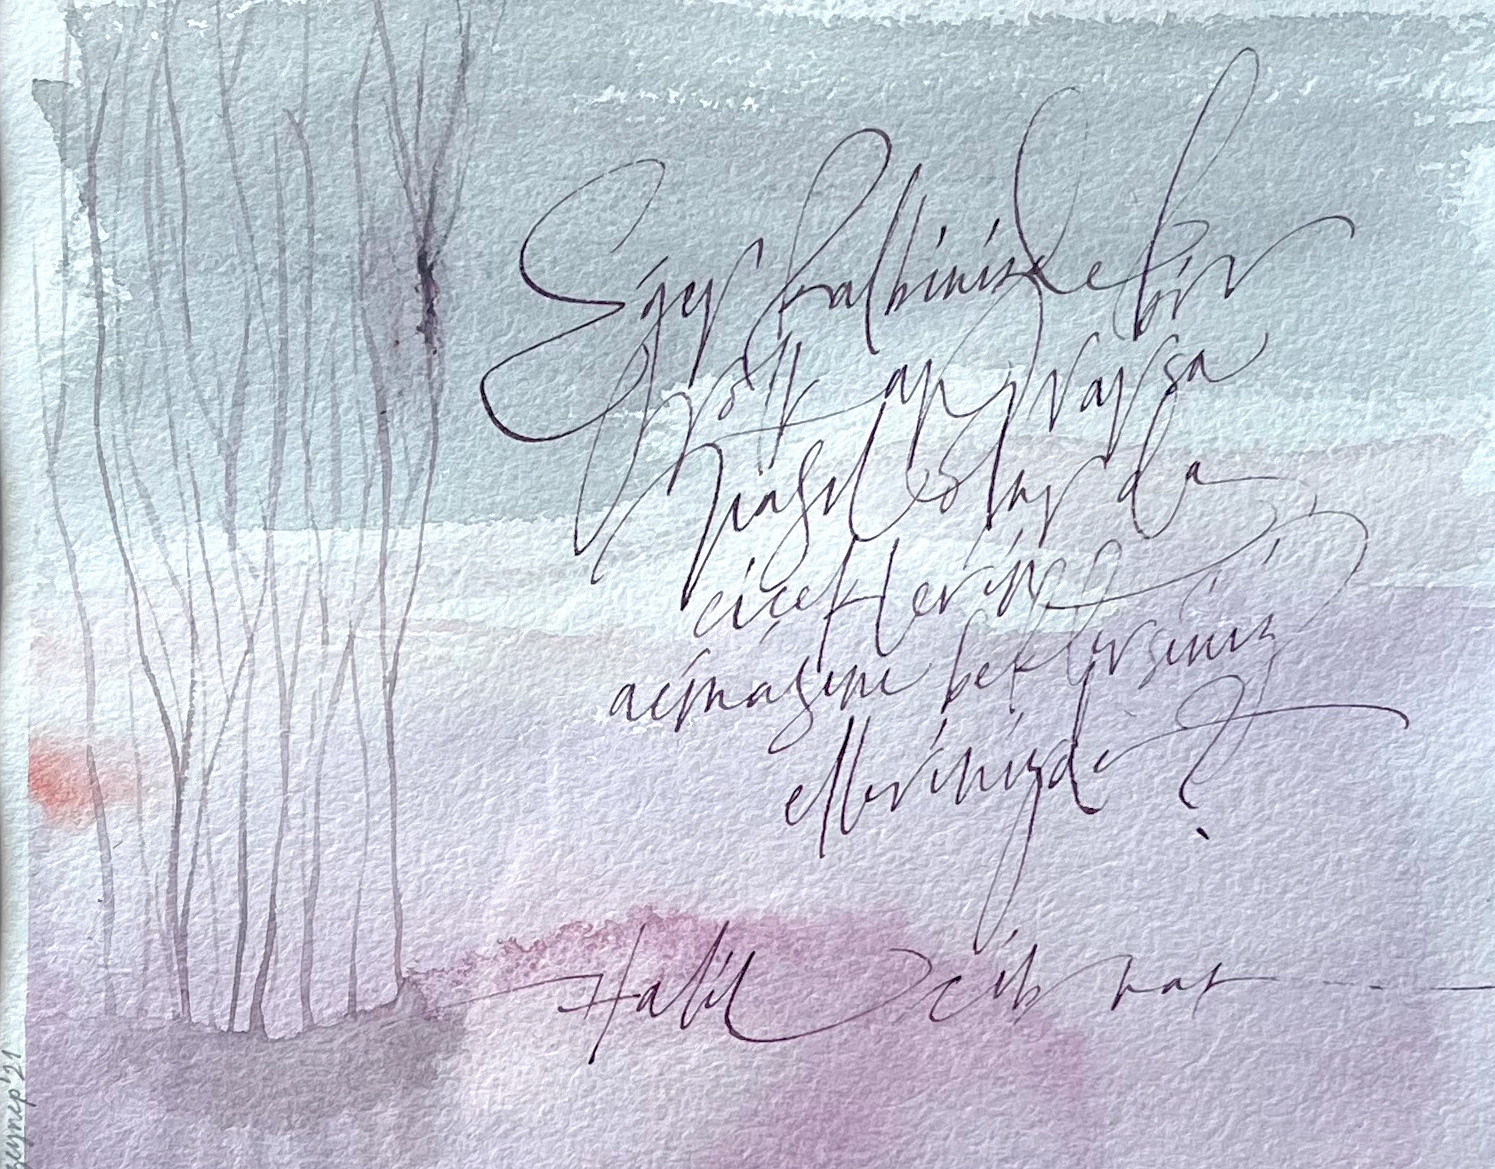 Eğer kalbinizde bir
volkan varsa
nasıl olur da
çiçeklerin
açmasını beklersiniz
ellerinizde ?
Halil Cibran
zeynep'21